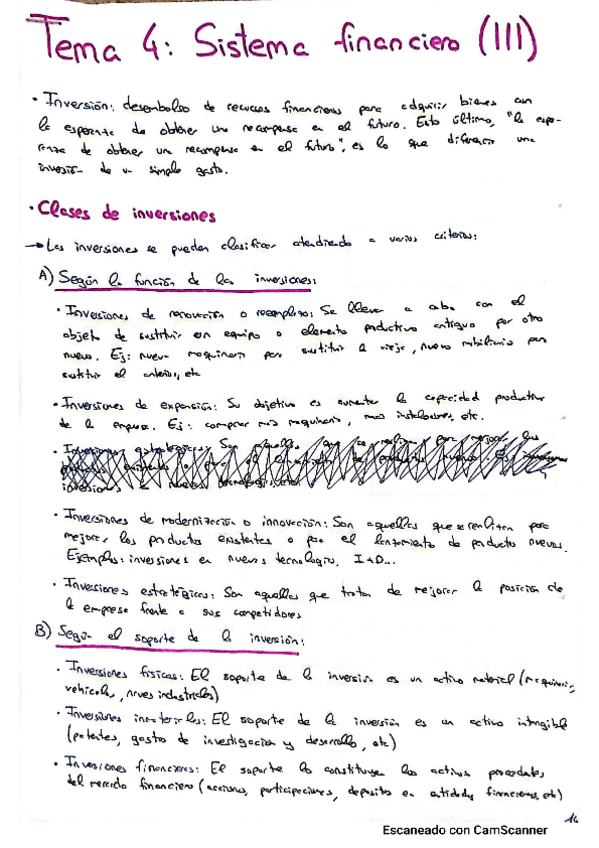 Tema 4: Sistema financiero (III)
· Inversión: desembolso de recursos financieros para adquirir bienes con
la esperanza de obtener una recompensa en el futuro. Esto último, "la espe-
ranza de obtener una recompensa en el futuro", es lo que diferencia una
inversión de un simple gasto.
· Clases de inversiones
→ Las inversiones se pueden clasificar atendiendo a varios criterios:
A) Según la función de las inversiones:
· Inversiones de renovación o reemplazo: Se lleva a cabo con el
objeto de sustituir un equipo o elemento productivo antiguo por otro
nuevo. Ej: nueva maquinaria para sustituir la vieja, nuevo mobiliario para
sustituir el anterior, etc
· Inversiones de expansión: Su objetivo es aumentar la capacidad productiva
de la empresa. Ej: comprar más maquinaria, más instalaciones, etc.
· Inversiones estratégicas: Son aquellas que se realizan para mejorar los
inversiones en nuevas
· Inversiones de modernización o innovación: Son aquellas que se realizan para
mejorar los productos existentes o para el lanzamiento de productos nuevos.
Ejemplos: inversiones en nuevas tecnologías, I+D...
· Inversiones estratégicas: Son aquellas que tratan de mejorar la posición de
la empresa frente a sus competidores
B) Según el soporte de la inversión:
· Inversiones físicas: El soporte de la inversión es un activo material (maquinaria,
vehículos, naves industriales)
· Inversiones inmateriales: El soporte de la inversión es un activo intangible
(patentes, gastos de investigación y desarrollo, etc)
· Inversiones financieras: El soporte lo constituyen los activos procedentes
del mercado financiero (acciones, participaciones, depósitos en entidades financieras, etc)
Escaneado con CamScanner